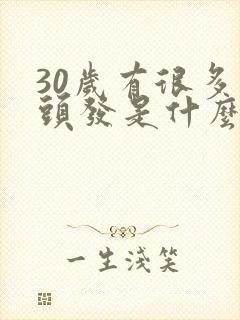 30歲有很多
頭發是什麼
一生淺笑